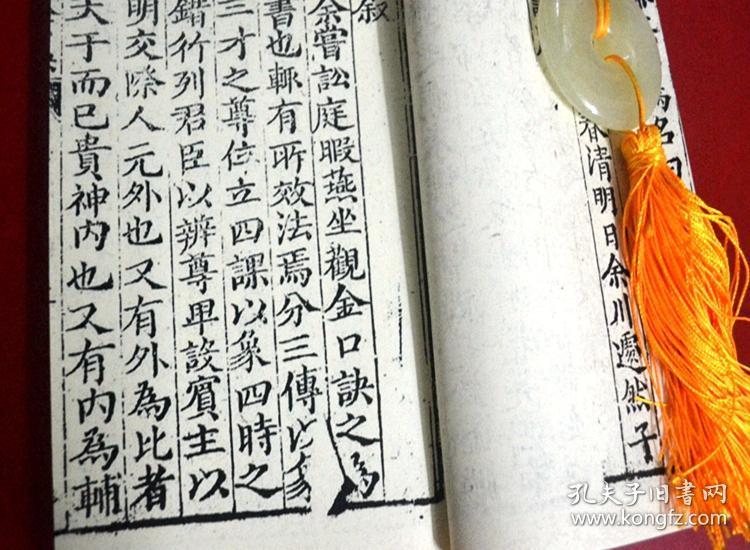 清明日余川遯然子
叙
余嘗訟庭暇燕坐觀金口訣之為
書也輒有所效法焉分三傳以象
三才之尊位立四課以象四時之
錯行列君臣以辨尊卑設賓主以
明交際人元外也又有外為比者
夫于而已貴神内也又有内為輔
孔夫子旧書网
www.kongfz.com